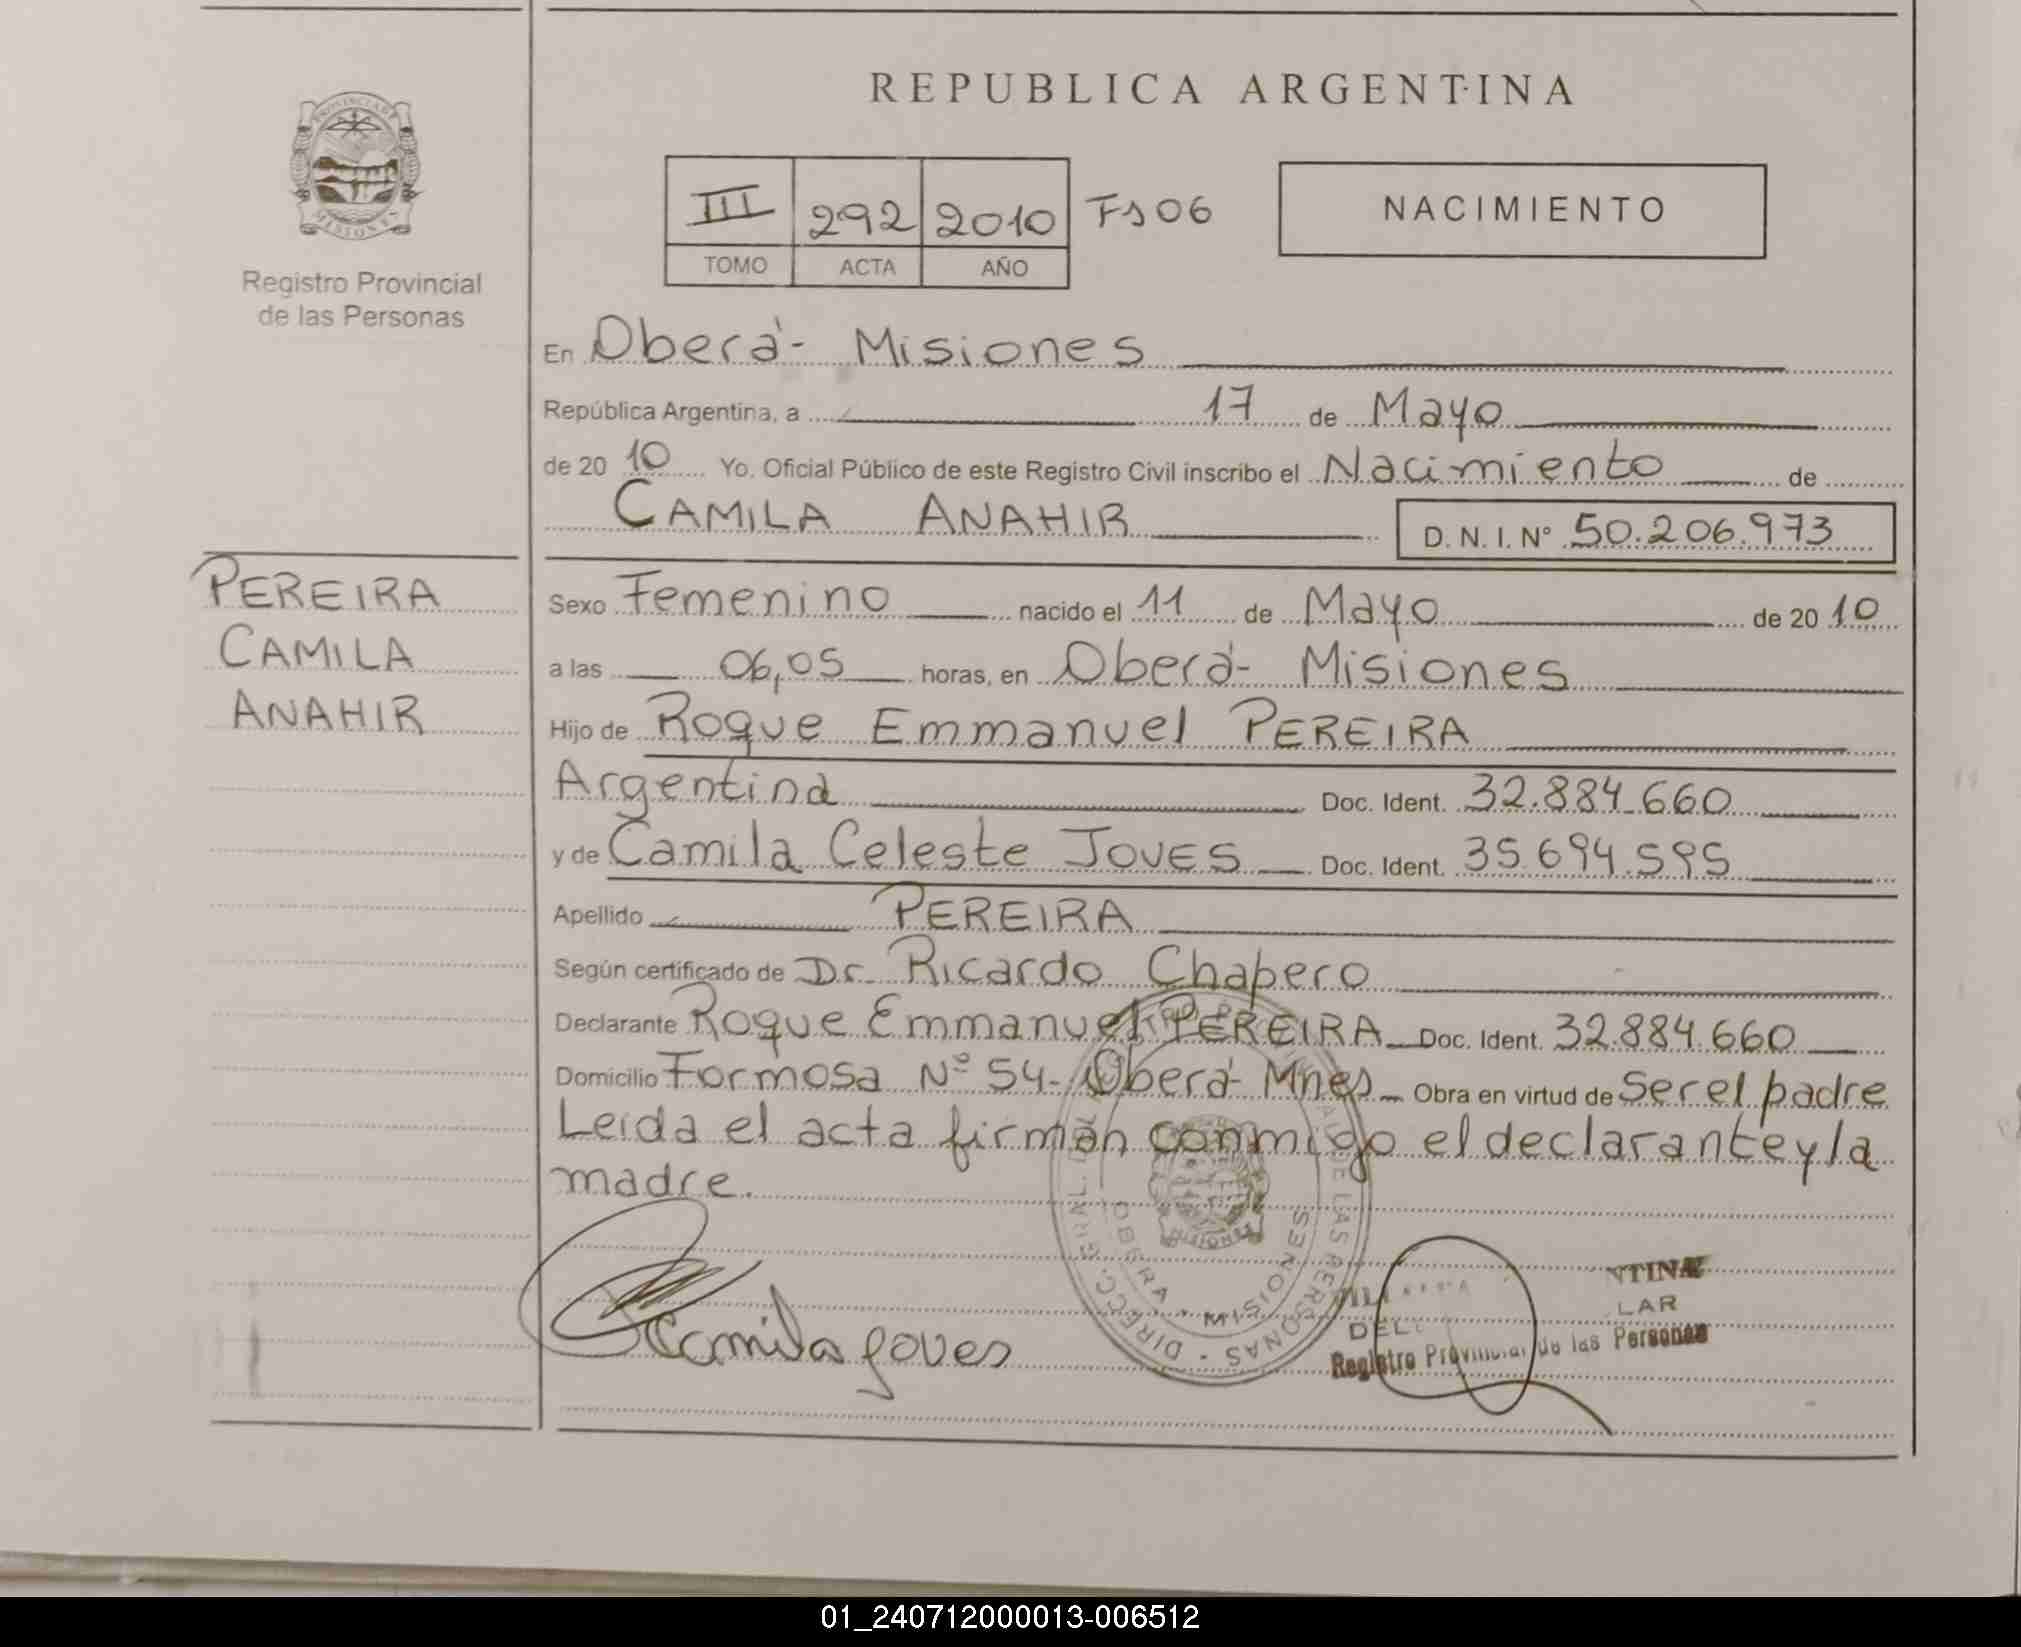 REPUBLICA ARGENTINA
PROVINCIA DE
MISIONES
Registro Provincial
de las Personas
III 292 2010 Fs 06
TOMO ACTA AÑO
NACIMIENTO
En Oberá - Misiones
República Argentina, a 17 de Mayo
de 20 10 Yo. Oficial Público de este Registro Civil inscribo el Nacimiento de
CAMILA ANAHIR D. N. I. Nº 50.206.973
PEREIRA
CAMILA
ANAHIR
Sexo Femenino nacido el 11 de Mayo de 20 10
a las 06,05 horas, en Oberá - Misiones
Hijo de Roque Emmanuel PEREIRA
Argentina Doc. Ident. 32.884.660
y de Camila Celeste JOVES Doc. Ident. 35.694.595
Apellido PEREIRA
Según certificado de Dr. Ricardo Chapero
Declarante Roque Emmanuel PEREIRA Doc. Ident. 32.884.660
Domicilio Formosa Nº 54- Oberá- Mnes Obra en virtud de Ser el padre
Leida el acta firman conmigo el declarante y la
madre.
Camila Joves
DE LAS PERSONAS
OBERA - MISIONES
MISIONES
NTINA
LAR
DEL
Registro Provincial de las Personas
01_240712000013-006512